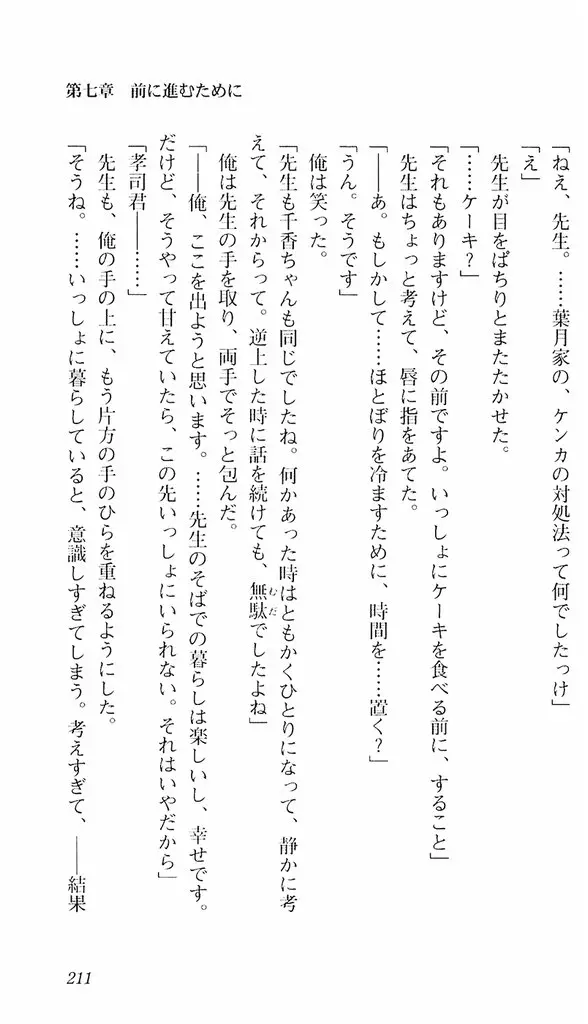 第七章　前に進むために
「ねえ、先生。……葉月家の、ケンカの対処法って何でしたっけ」
「え」
　先生が目をぱちりとまたたかせた。
「……ケーキ？」
「それもありますけど、その前ですよ。いっしょにケーキを食べる前に、すること」
　先生はちょっと考えて、唇に指をあてた。
「――あ。もしかして……ほとぼりを冷ますために、時間を……置く？」
「うん。そうです」
　俺は笑った。
「先生も千香ちゃんも同じでしたね。何かあった時はともかくひとりになって、静かに考
えて、それからって。逆上した時に話を続けても、無駄でしたよね」
むだ
　俺は先生の手を取り、両手でそっと包んだ。
「――俺、ここを出ようと思います。……先生のそばでの暮らしは楽しいし、幸せです。
だけど、そうやって甘えていたら、この先いっしょにいられない。それはいやだから」
「孝司君――……」
　先生も、俺の手の上に、もう片方の手のひらを重ねるようにした。
「そうね。……いっしょに暮らしていると、意識しすぎてしまう。考えすぎて、――結果
211